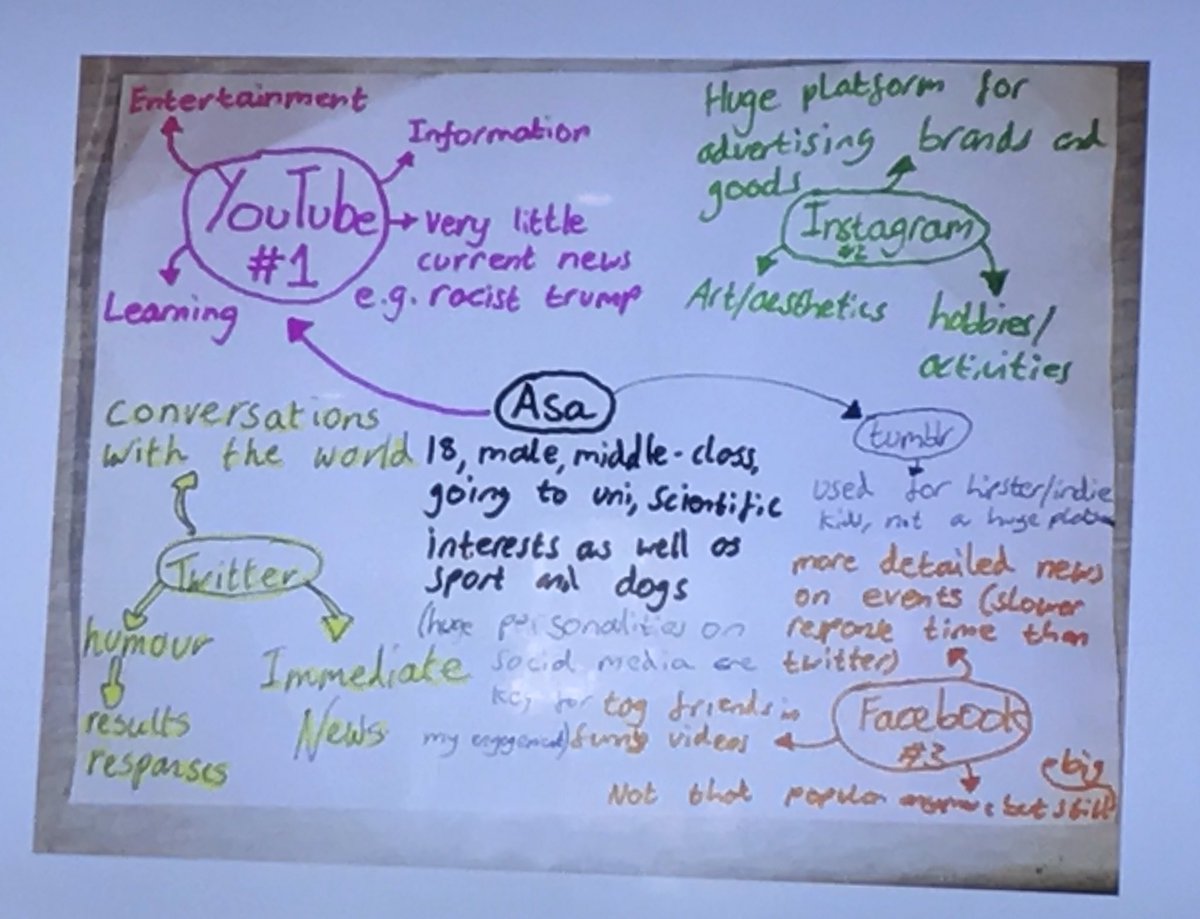 Entertainment
Information
YouTube
#1
very little
current news
e.g. racist trump
Learning
Huge platform for
advertising brands and
goods
Instagram
#2
Art/aesthetics
hobbies/
activities
Asa
18, male, middle-class,
going to uni, scientific
interests as well as
sport and dogs
(huge personalities on
social media are
key for
my engagement)
tumblr
used for hipster/indie
kids, not a huge platform
conversations
with the world
Twitter
humour
results
responses
Immediate
News
more detailed news
on events (slower
response time than
twitter)
Facebook
#3
tag friends in
funny videos
Not that popular anymore but still
big